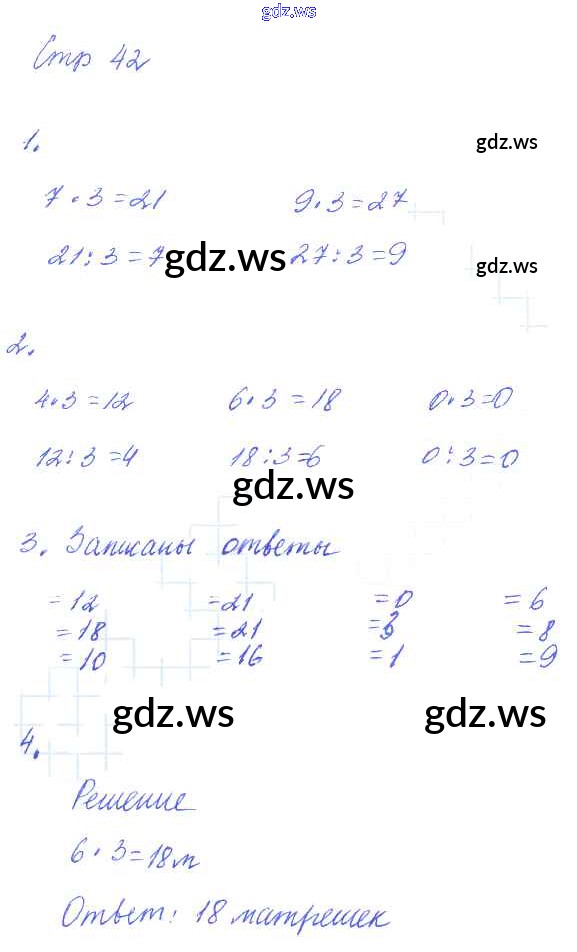 gdz.ws
Стр 42
1.
gdz.ws
7 · 3 = 21 9 · 3 = 27
21 : 3 = 7 gdz.ws 27 : 3 = 9 gdz.ws
2.
4 · 3 = 12 6 · 3 = 18 0 · 3 = 0
12 : 3 = 4 18 : 3 = 6 0 : 3 = 0
gdz.ws
3. Записаны ответы
= 12 = 21 = 0 = 6
= 18 = 21 = = 8
= 10 = 16 = 1 = 9
gdz.ws gdz.ws
4.
Решение
6 · 3 = 18 м
Ответ: 18 матрешек